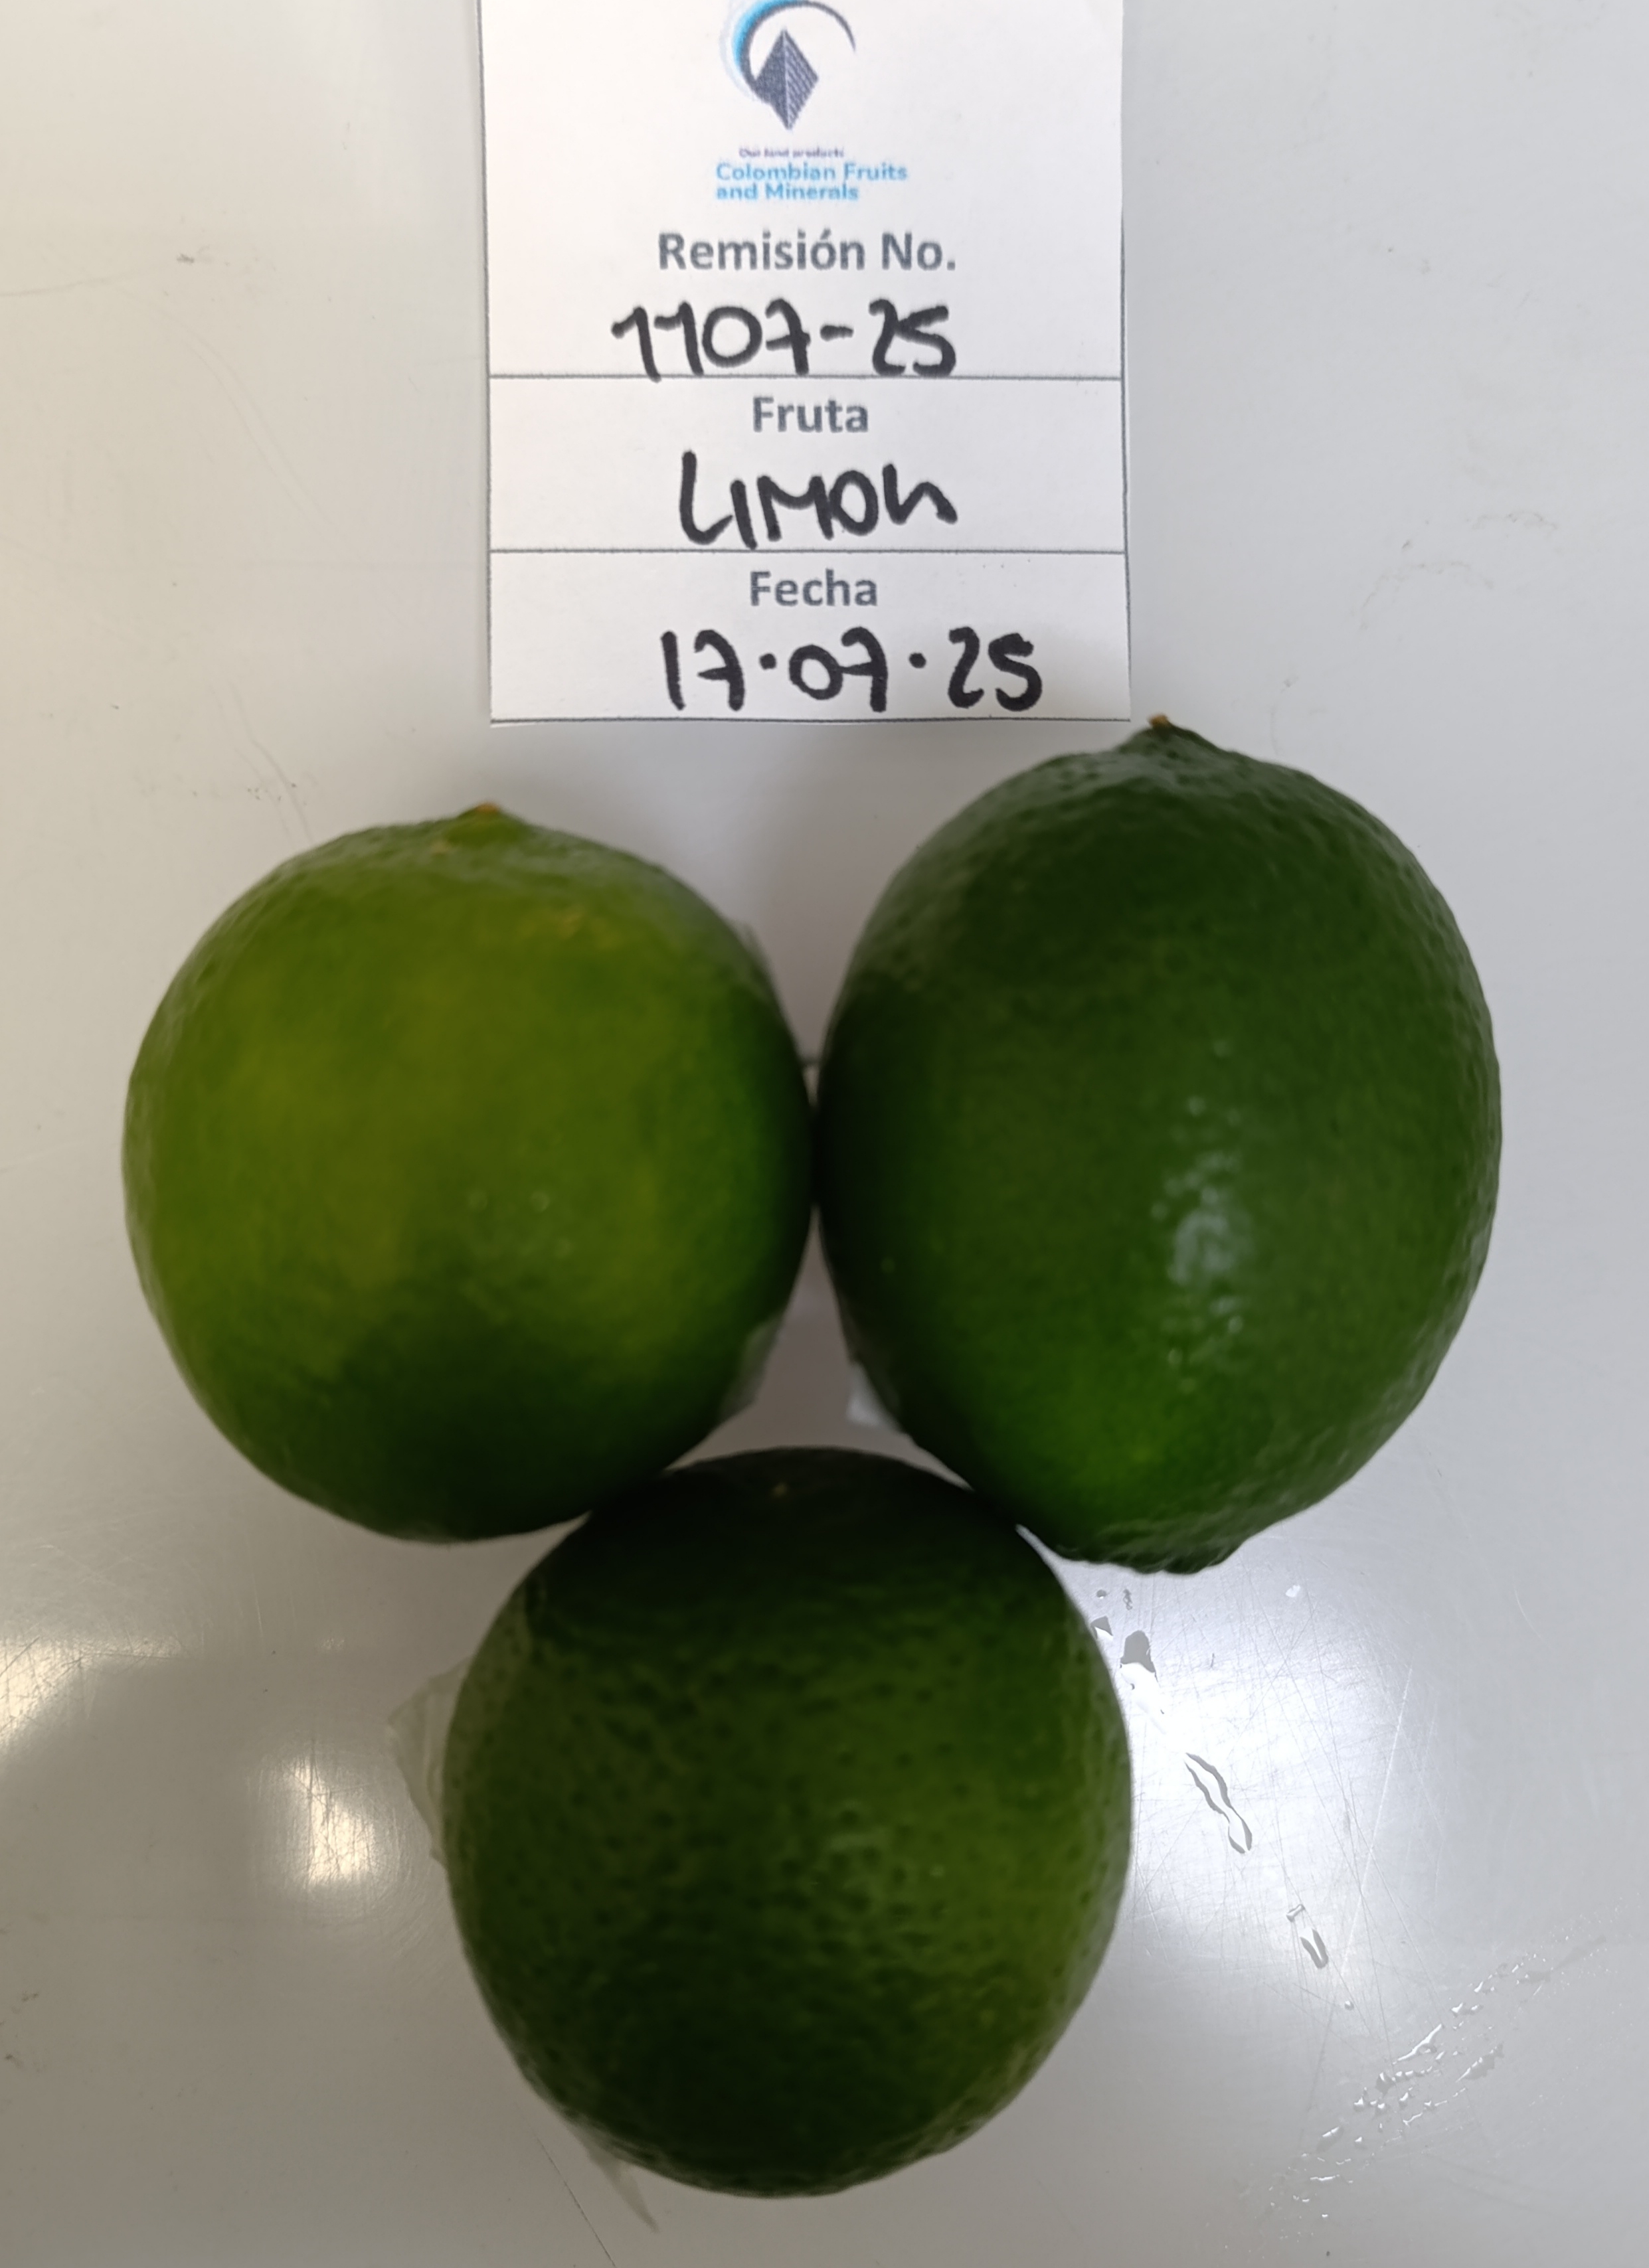 Our land products
Colombian Fruits
and Minerals
Remisión No.
1107-25
Fruta
LIMON
Fecha
17.07.25